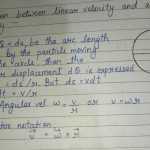 on between linear velocity and a
y
S = dx, be the arc length
by the particle moving
circle than the
r displacement dθ is expressed
= ds/r. But ds = vdt
dt = v/r
Angular vel ω = v/r or v = ωr
tor notation